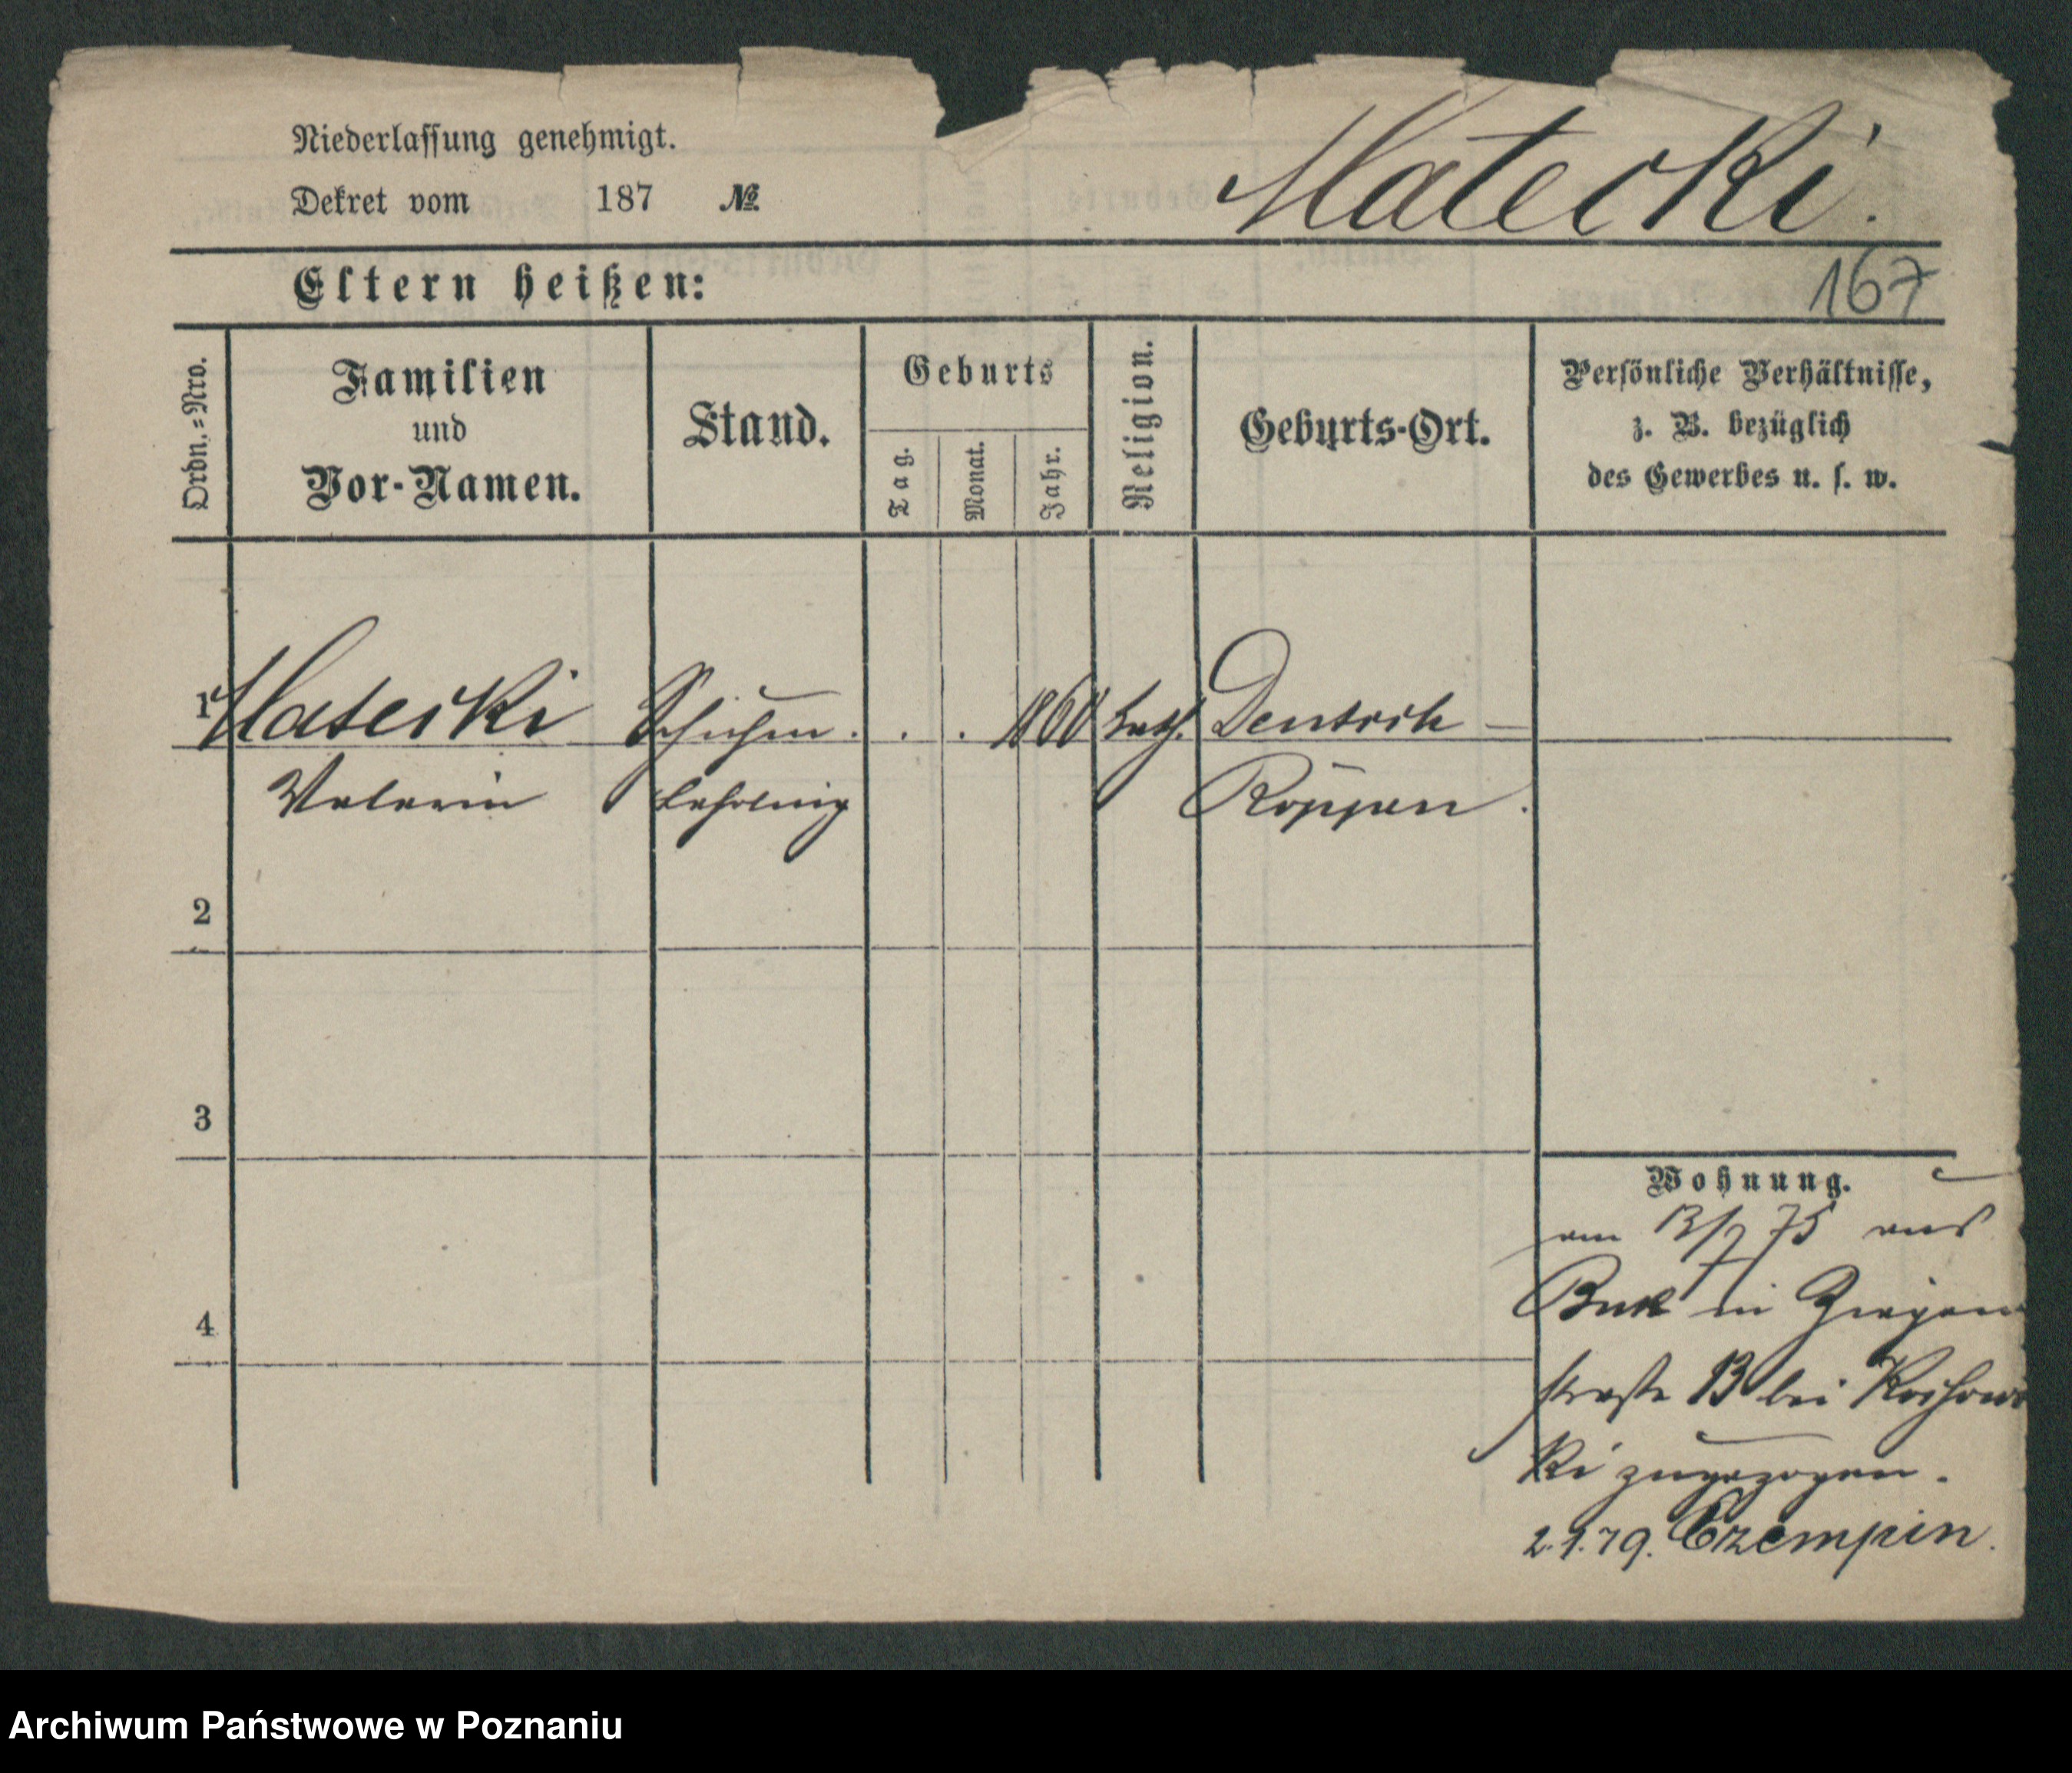 Niederlassung genehmigt.
Dekret vom 187 №
Matecki.
Eltern heißen:
167
Ordn.-Nro.
Familien
und
Vor-Namen.
Stand.
Geburts
Tag.
Monat.
Jahr.
Religion.
Geburts-Ort.
Persönliche Verhältnisse,
z. B. bezüglich
des Gewerbes u. s. w.
1 Matecki Schuhm. . . 1860 kath. Deutsch –
Valerin Lehrling Roppen.
2
3
4
Wohnung.
am 13/7 75 aus
Buk in Ziegen
straße 13 bei
ki zugezogen.
2.1.79. Czempin.
Archiwum Państwowe w Poznaniu